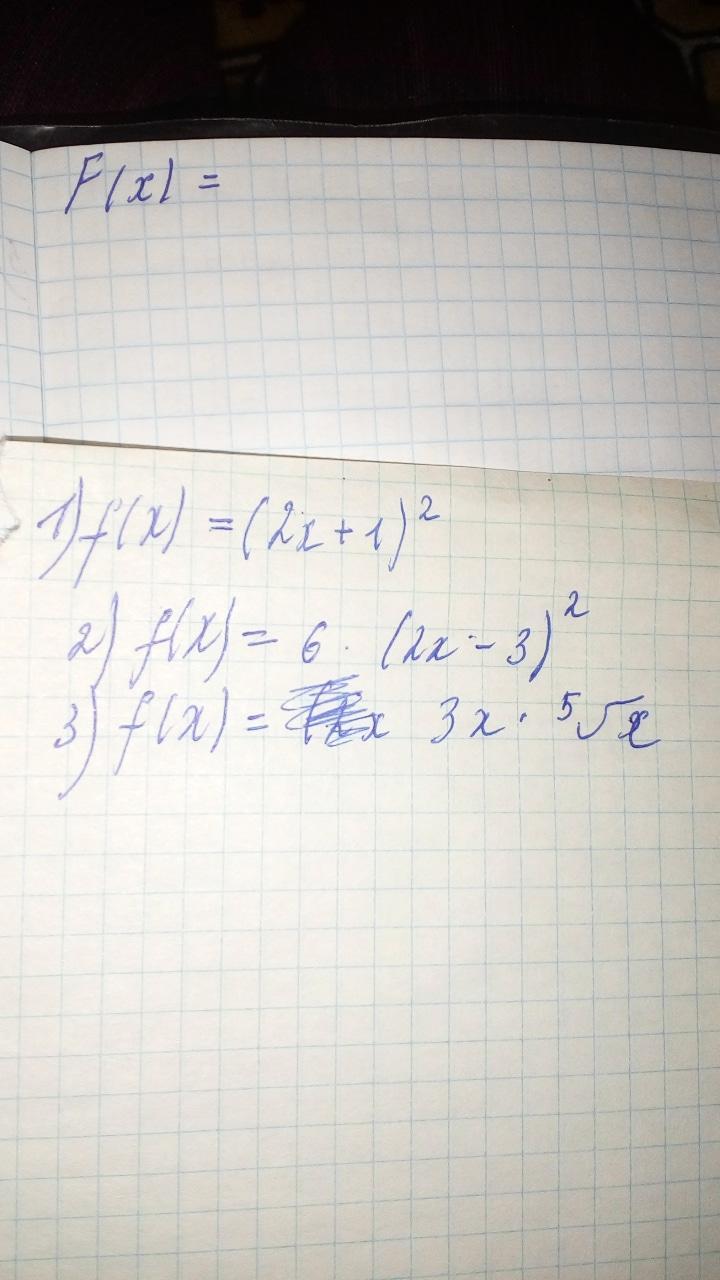 F(x) =
1) f(x) = (2x+1)²
2) f(x) = 6 · (2x - 3)²
3) f(x) = x 3x · ⁵√x